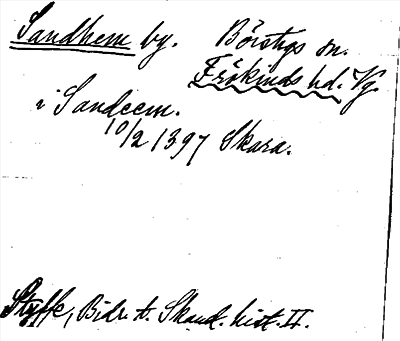 Sandhem by. Börstigs sn.
Frökinds hd. Vg.
i Sandeem.
10/2 1397 Skara.
Styffe, Bidr. t. Skand. hist. II.